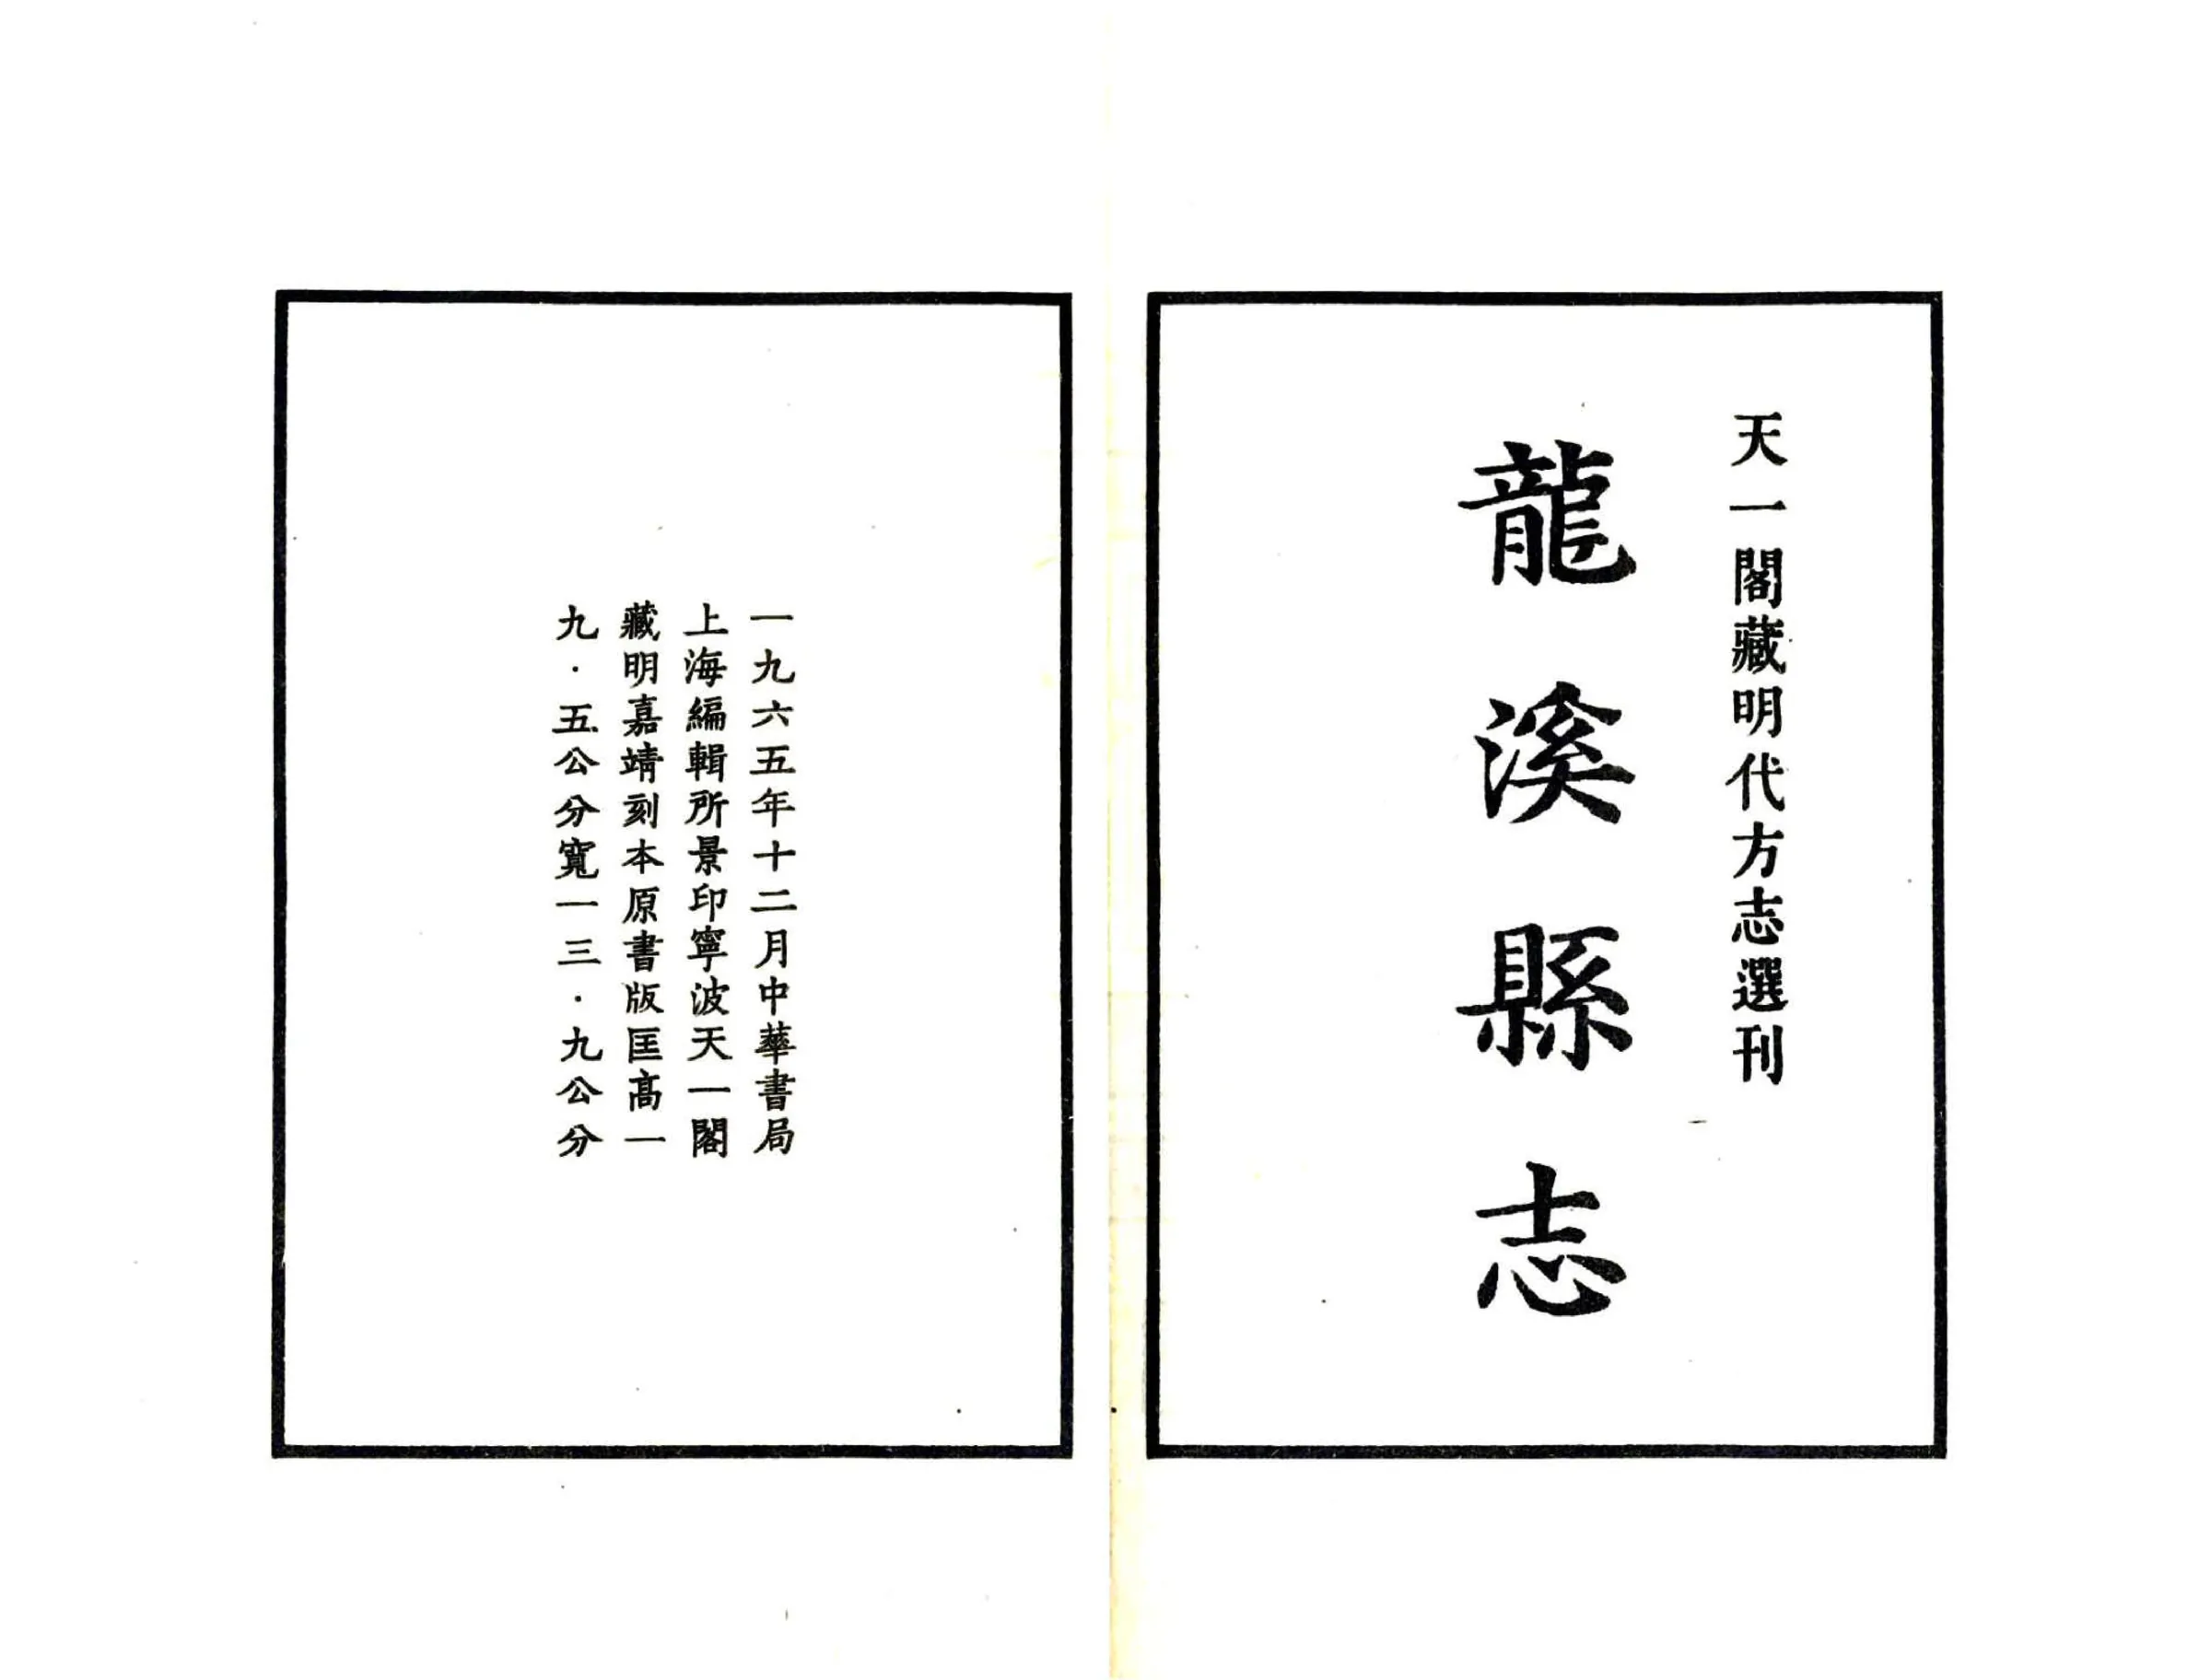 天一閣藏明代方志選刊
龍溪縣志
一九六五年十二月中華書局
上海編輯所景印寧波天一閣
藏明嘉靖刻本原書版匡高一
九·五公分寬一三·九公分